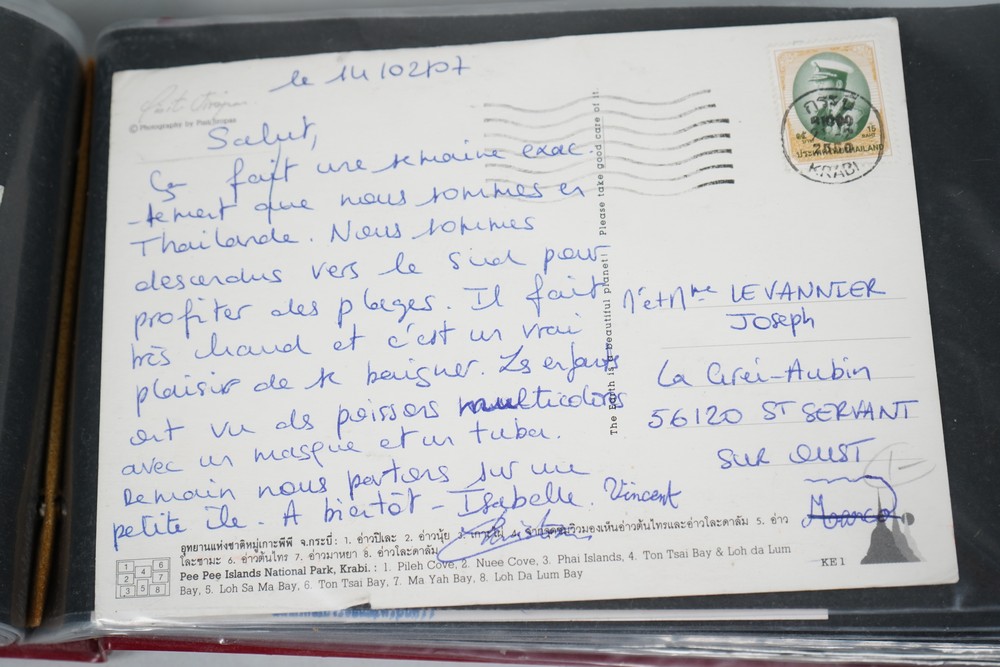 le 14/02/07
© Photography by
Salut,
Ça fait une semaine exac-
tement que nous sommes en
Thaïlande. Nous sommes
descendus vers le Sud pour
profiter des plages. Il fait
très chaud et c'est un vrai
plaisir de se baigner. Les enfants
ont vu des poissons multicolores
avec un masque et un tuba.
Demain nous partons sur une
petite île. A bientôt - Isabelle. Vincent
The Earth is a beautiful planet! Please take good care of it.
กระบี่
81000
KRABI
15
ประเทศไทย THAILAND
Mr et Mme LE VANNIER
Joseph
La Grei-Aubin
56120 ST SERVANT
SUR OUST
France
อุทยานแห่งชาติหมู่เกาะพีพี จ.กระบี่ : 1. อ่าวปิเละ 2. อ่าวนุ้ย 3. เกาะไผ่ 4. จากจุดชมวิวมองเห็นอ่าวต้นไทรและอ่าวโละดาลัม 5. อ่าว
โละซามะ 6. อ่าวต้นไทร 7. อ่าวมาหยา 8. อ่าวโละดาลัม
Pee Pee Islands National Park, Krabi. : 1. Pileh Cove, 2. Nuee Cove, 3. Phai Islands, 4. Ton Tsai Bay & Loh da Lum
Bay, 5. Loh Sa Ma Bay, 6. Ton Tsai Bay, 7. Ma Yah Bay, 8. Loh Da Lum Bay
KE 1
1 4 6
2 7
3 5 8